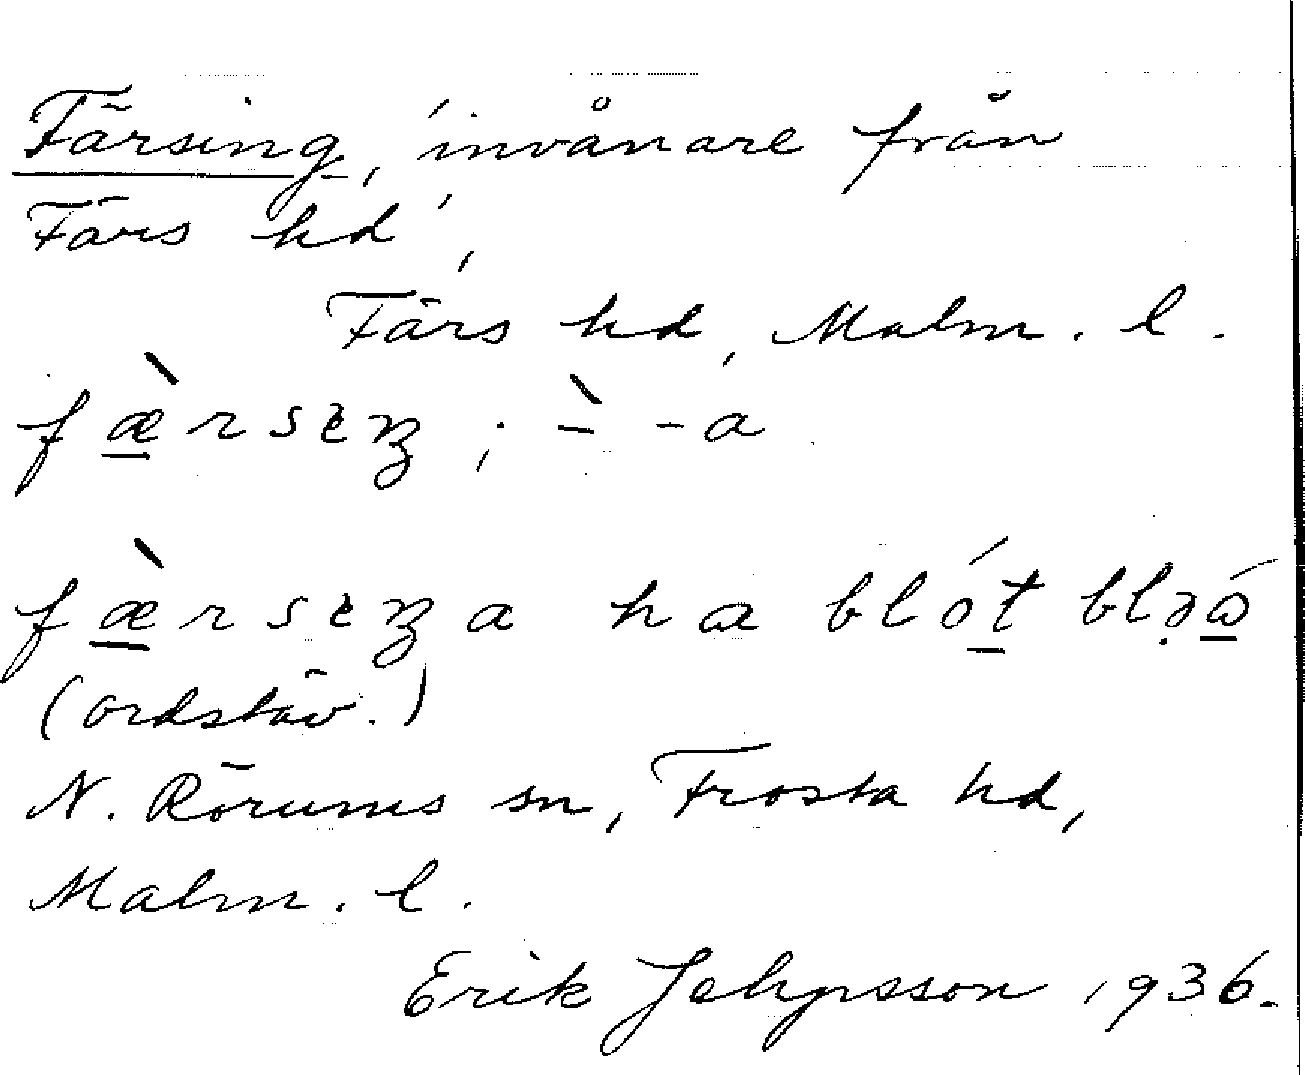 Färsing, 'invånare från
Färs hd',
Färs hd, Malm. l.
fæ̠̀rsɛŋ ; -̀ -a
fæ̠̀rsɛŋa ha bló̠t blọɔ̠́
(ordstäv.)
N. Rörums sn, Frosta hd,
Malm. l.
Erik 1936.